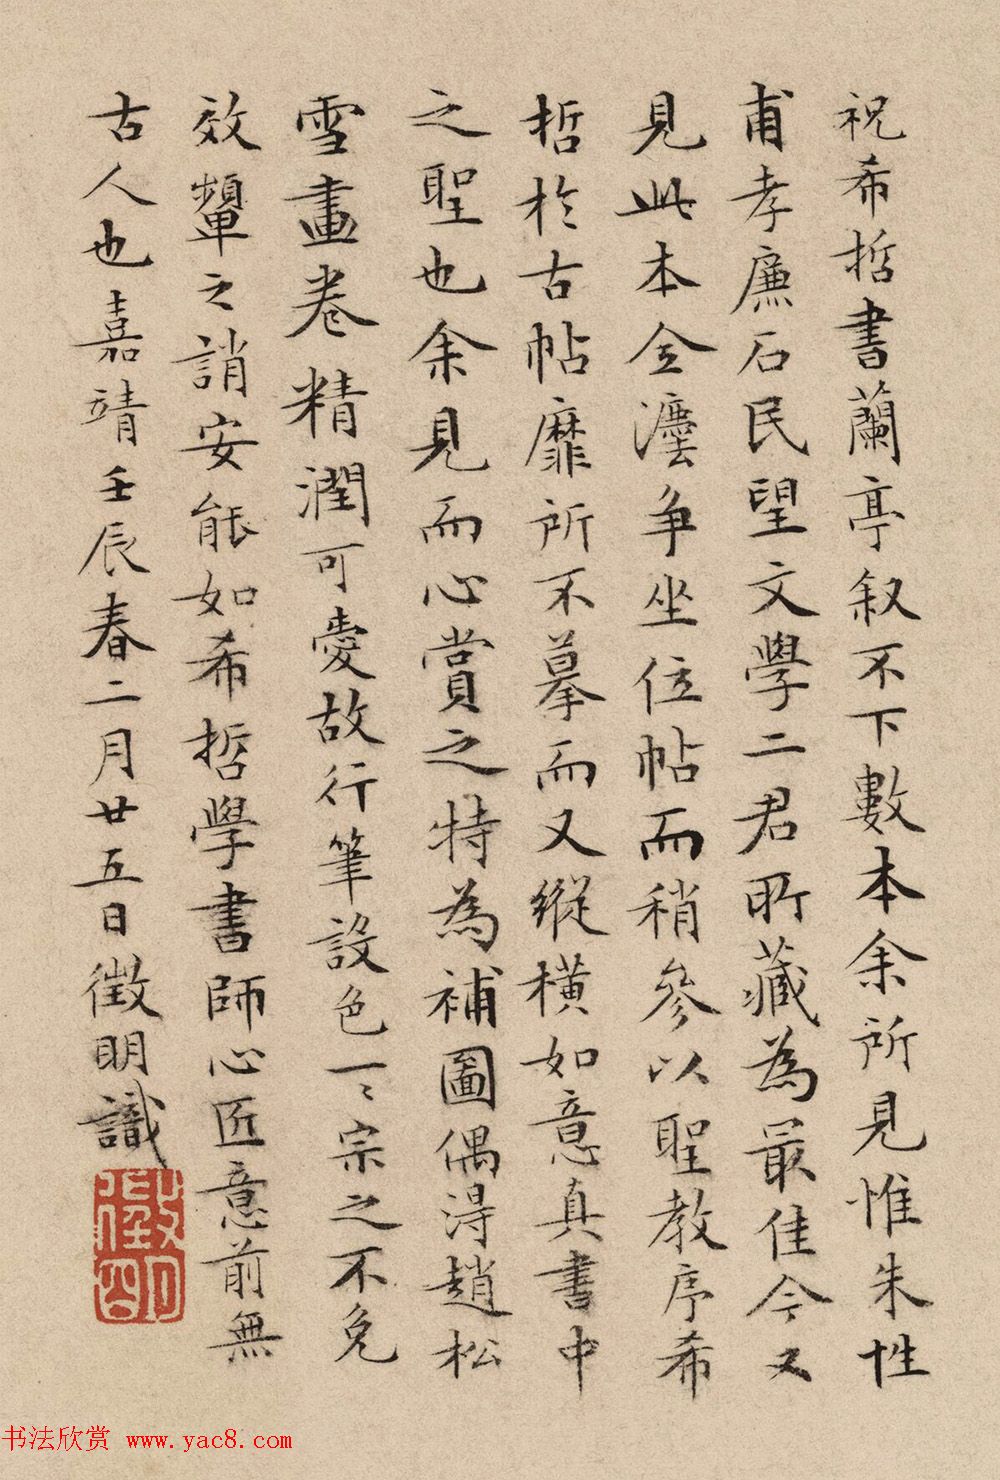 祝希哲書蘭亭叙不下數本余所見惟朱性
甫孝廉石民望文學二君所藏為最佳今又
見此本全灋争坐位帖而稍參以聖教序希
哲於古帖靡所不摹而又縱橫如意真書中
之聖也余見而心賞之特為補圖偶得趙松
雪畫卷精潤可愛故行筆設色一〻宗之不免
效顰之誚安能如希哲學書師心匠意前無
古人也嘉靖壬辰春二月廿五日徵明識
徵明
书法欣赏 www.yac8.com